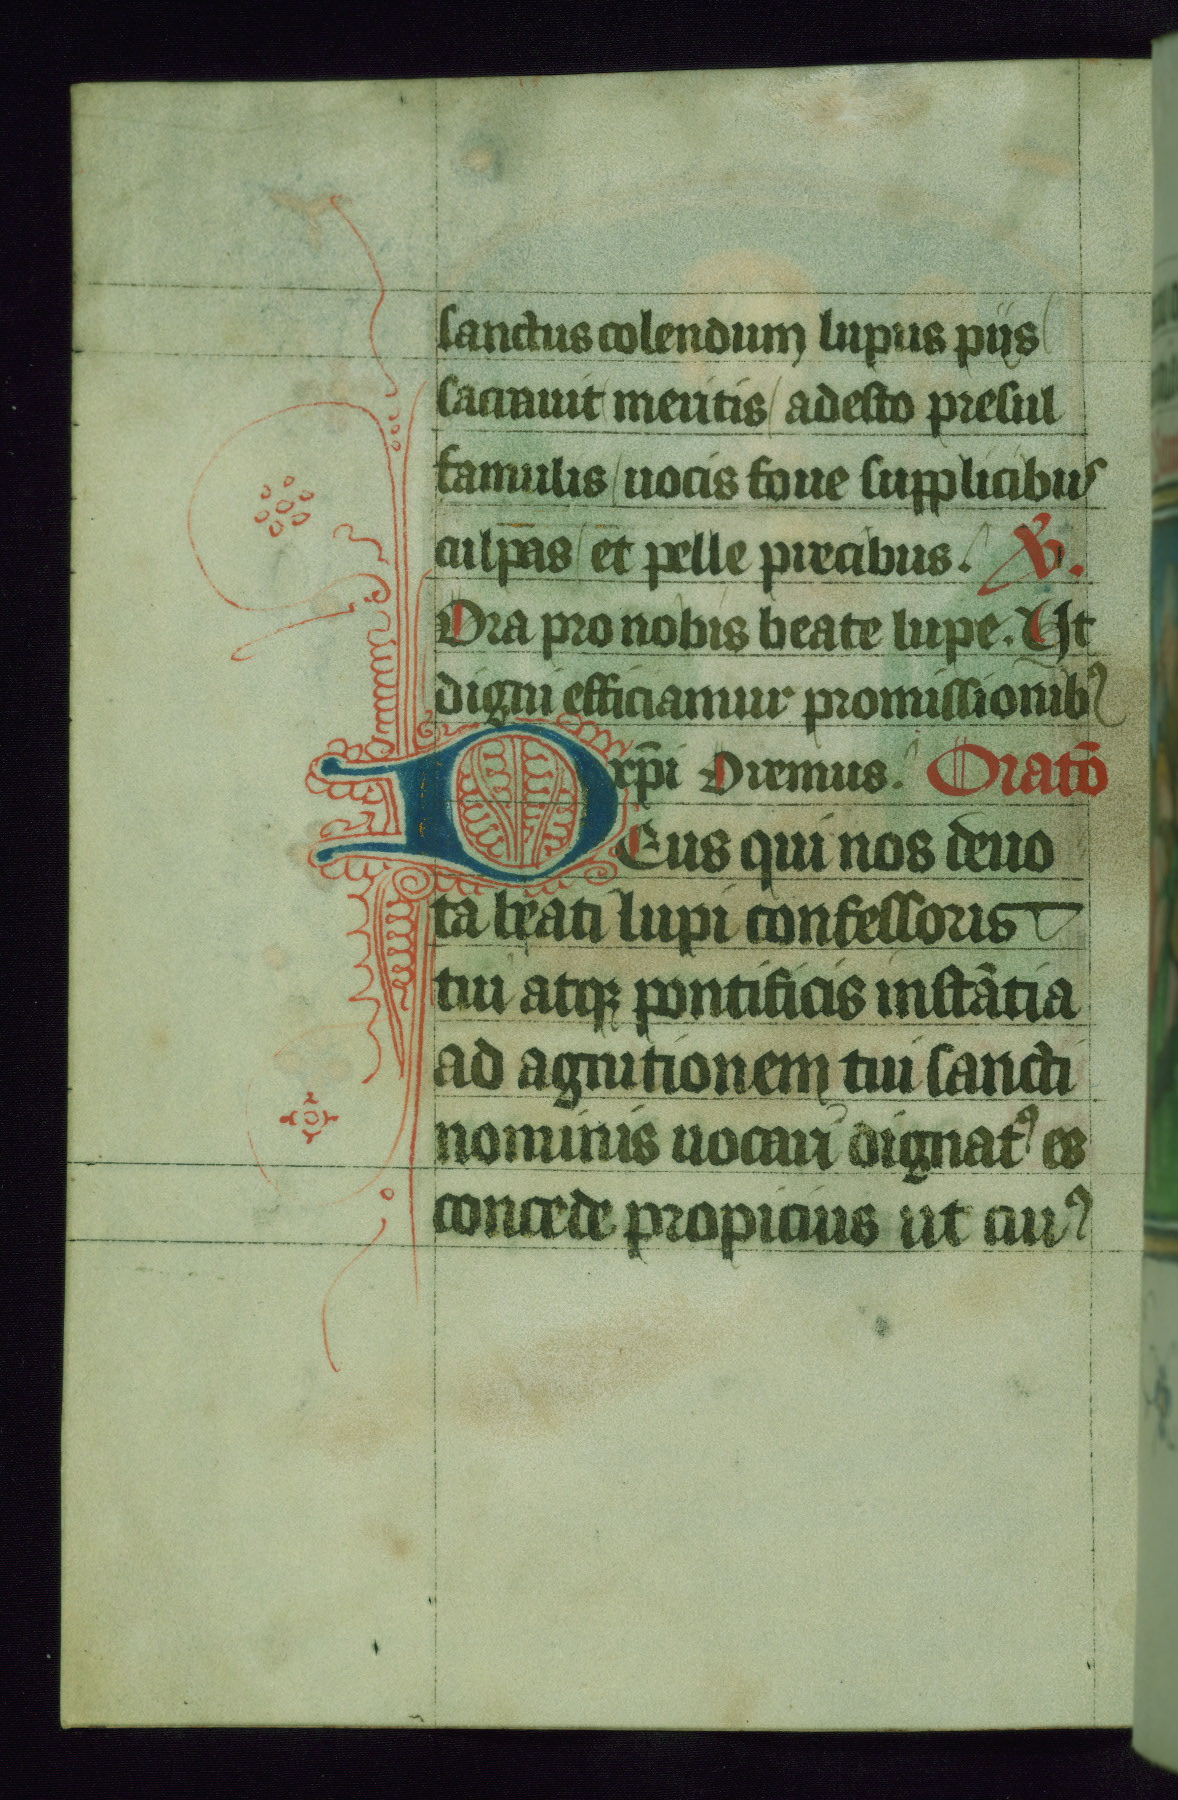 sanctus colendum lupus piis
sacrauit meritis adesto presul
famulis uocis foue supplicibus
culpas et pelle precibus. V.
Ora pro nobis beate lupe. Ut
digni efficiamur promissionibꝰ
xp̄i Oremus. Oratō
DEus qui nos deuo
ta beati lupi confessoris
tui atqꝫ pontificis instātia
ad agnitionem tui sancti
nominis uocari dignatꝰ es
concede propicius ut cuiꝰ